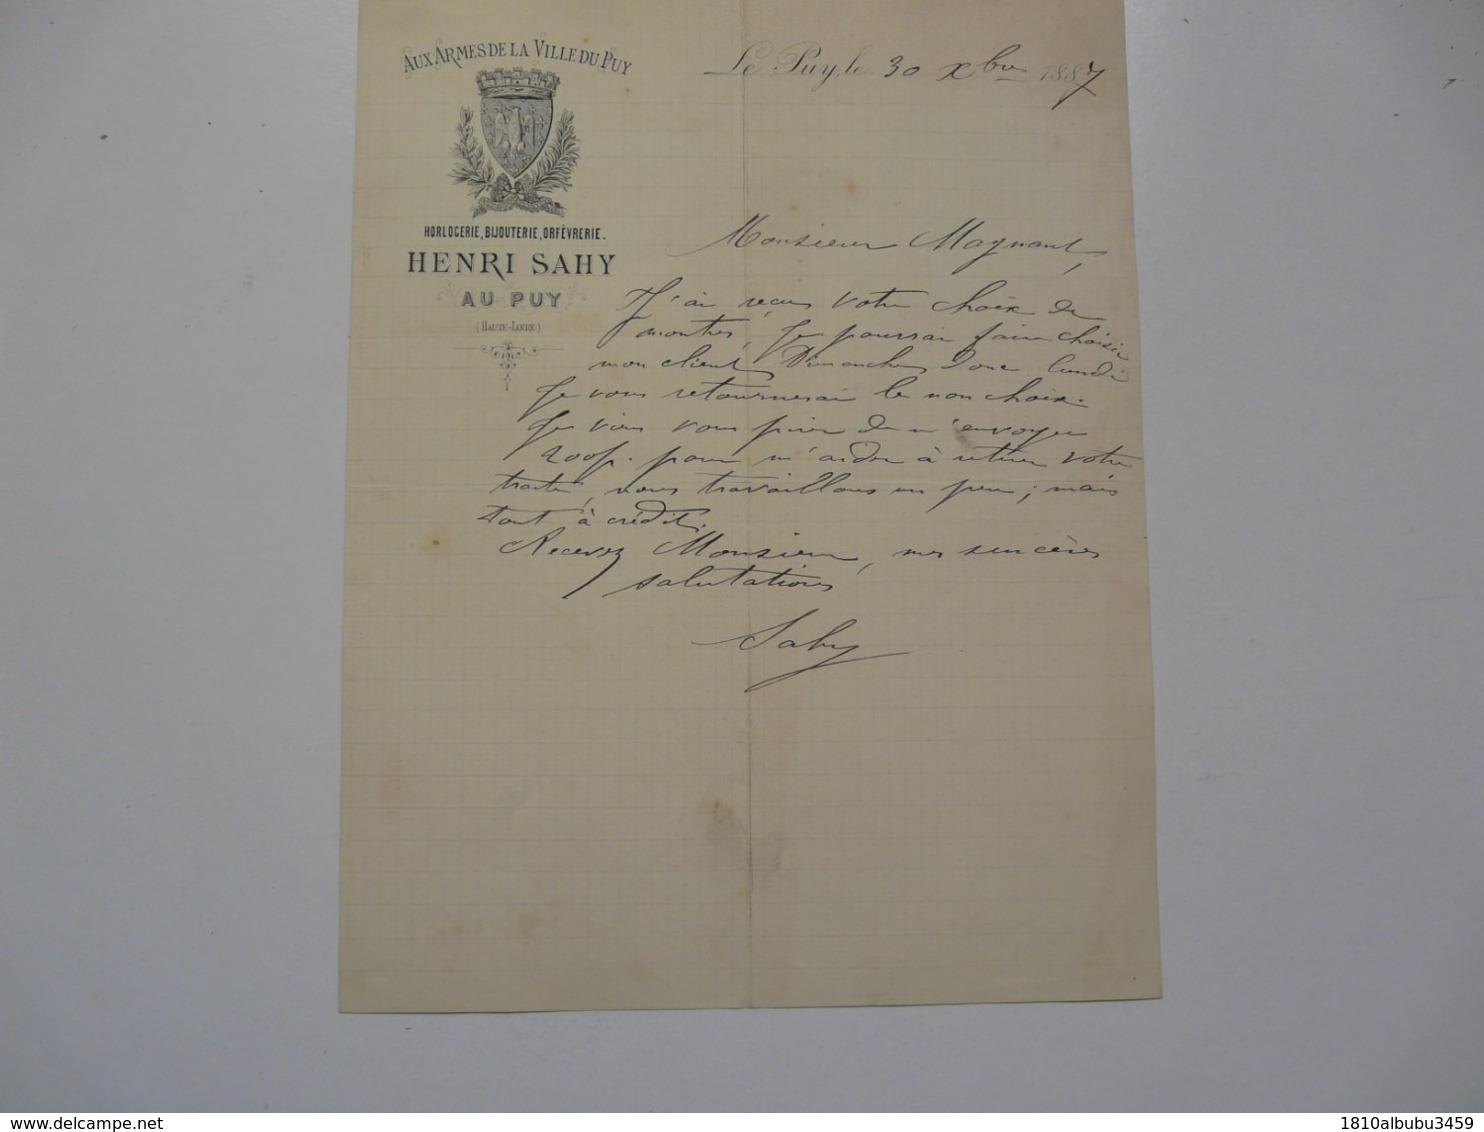 AUX ARMES DE LA VILLE DU PUY
Le Puy, le 30 Xbre 1887
HORLOGERIE, BIJOUTERIE, ORFÈVRERIE.
HENRI SAHY
AU PUY
(HAUTE-LOIRE)
Monsieur Magnant,
J'ai reçu votre choix de
montres, je pourrai faire choisir
mon client Dimanche donc lundi
je vous retournerai le non choix.
Je viens vous prier de m'envoyer
200f. pour m'aider à retirer votre
traite, nous travaillons un peu; mais
tout à crédit.
Recevez Monsieur, mes sincères
salutations
Sahy
www.delcampe.net
1810albubu3459